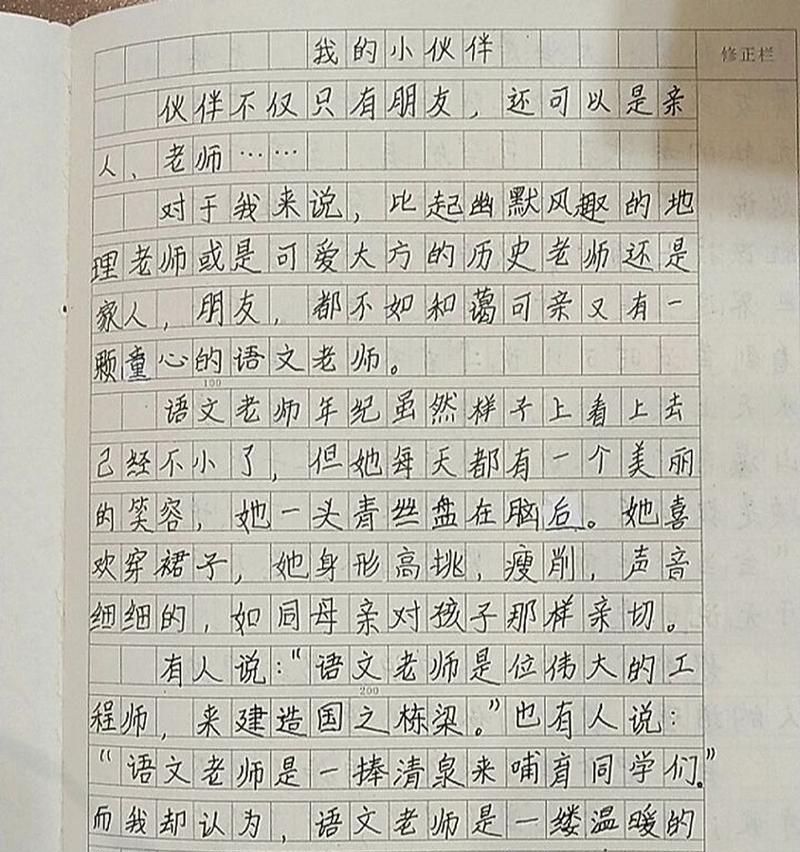 我的小伙伴
修正栏
伙伴不仅只有朋友，还可以是亲
人、老师……
对于我来说，比起幽默风趣的地
理老师或是可爱大方的历史老师还是
家人，朋友，都不如和蔼可亲又有一
颗童心的语文老师。
100
语文老师年纪虽然样子上看上去
已经不小了，但她每天都有一个美丽
的笑容，她一头青丝盘在脑后。她喜
欢穿裙子，她身形高挑，瘦削，声音
细细的，如同母亲对孩子那样亲切。
有人说：“语文老师是位伟大的工
200
程师，来建造国之栋梁。”也有人说：
“语文老师是一捧清泉来哺育同学们。”
而我却认为，语文老师是一缕温暖的